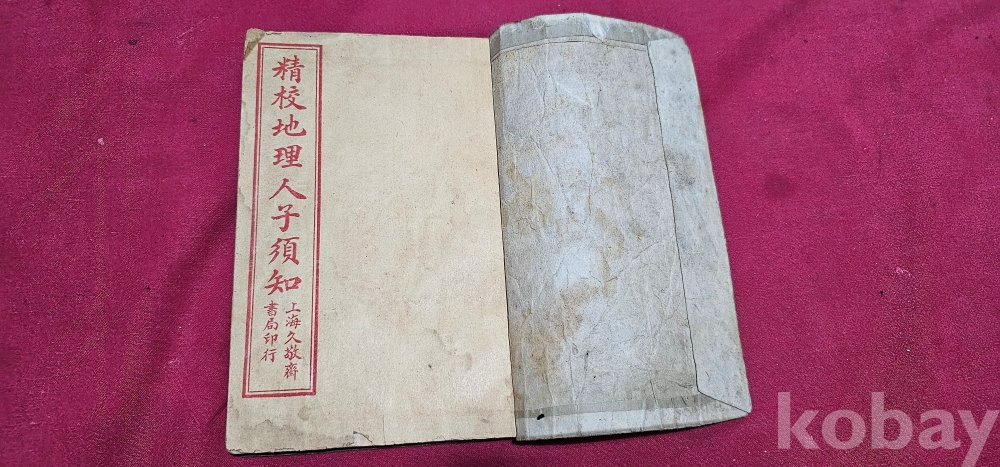 精校地理人子須知
上海久敬齋
書局印行
kobay